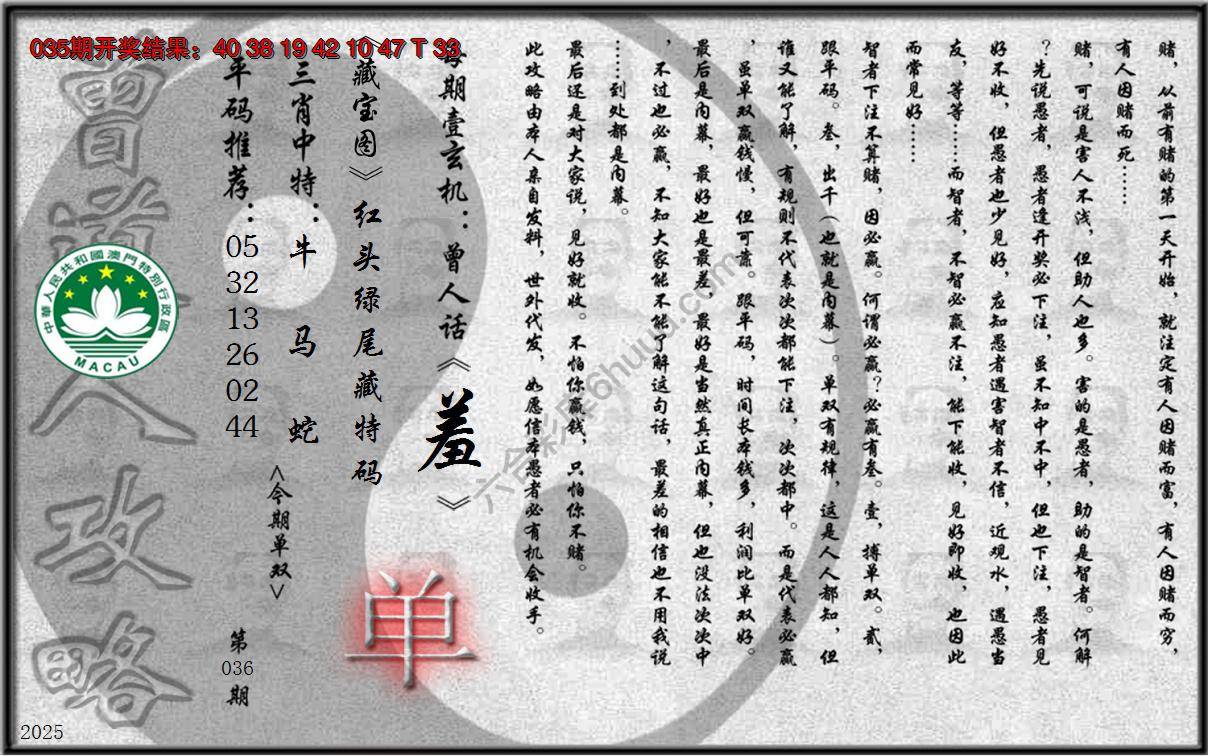 035期开奖结果：40 38 19 42 10 47 T 33
赌，从前有赌的第一天开始，就注定有人因赌而富，有人因赌而穷，
有人因赌而死……
赌，可说是害人不浅，但助人也多。害的是愚者，助的是智者。何解
？先说愚者，愚者逢开奖必下注，虽不知中不中，但也下注，愚者见
好不收，但愚者也少见好，应知愚者遇害智者不信，近观水，遇愚当
友，等等……而智者，不智必赢不注，能下能收，见好即收，也因此
而常见好……
智者下注不算赌，因必赢。何谓必赢？必赢有叁。壹，搏单双。贰，
跟平码。叁，出千（也就是内幕）。单双有规律，这是人人都知，但
谁又能了解，有规则不代表次次都能下注，次次都中。而是代表必赢
，虽单双赢钱慢，但可靠。跟平码，时间长本钱多，利润比单双好。
最后是内幕，最好也是最差，最好是当然真正内幕，但也没法次次中
，不过也必赢，不知大家能不能了解这句话，最差的相信也不用我说
……到处都是内幕。
最后还是对大家说，见好就收。不怕你赢钱，只怕你不赌。
此攻略由本人亲自发料，世外代发，如愿信本愚者必有机会收手。
每期壹玄机：曾人话《羞》
《藏宝图》红头绿尾藏特码
三肖中特：牛 马 蛇
<今期单双>
单
平码推荐：05 32 13 26 02 44
第036期
曾道人攻略
中華人民共和國澳門特別行政區
MACAU
六合彩库6huuu.com
2025